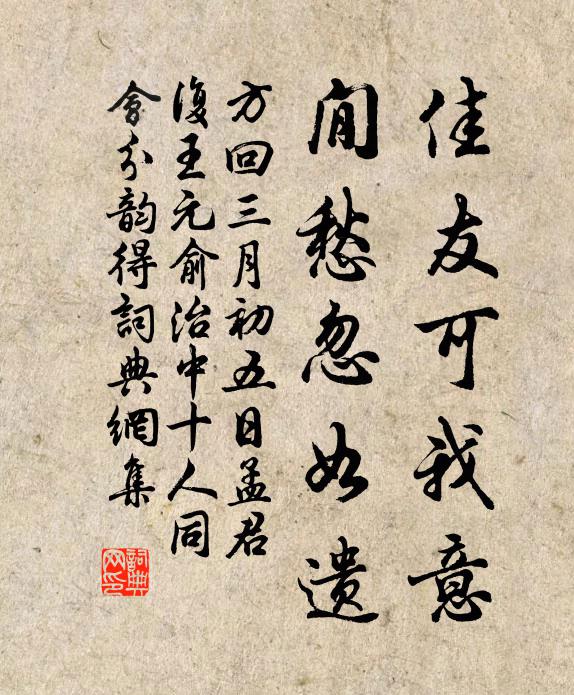 佳友可我意
閒愁忽如遺
方回三月初五日孟君
復王元俞治中十人同
會分韵得詞典網集
詞典网印